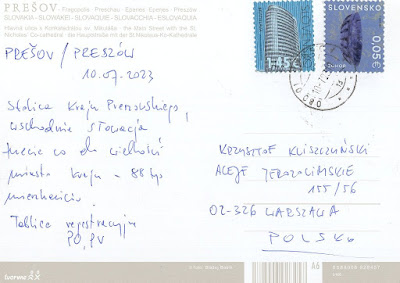 PREŠOV Fragopolis Preschau Eperies Eperjes Presov
SLOVAKIA - SLOWAKEI - SLOVAQUIE - SLOVACCHIA - ESLOVAQUIA
Hlavná ulica s Konkatedrálou sv. Mikuláša - the Main Street with the St.
Nicholas' Co-cathedral - die Hauptstraße mit der St. Nikolaus-Ko-Kathedrale
1.45€
SLOVENSKO
0,05€
PREŠOV / PRESZÓW
10.07.2023
Stolica Kraju Preszowskiego,
wschodnia Słowacja
trzecie co do wielkości
miasto kraju - 88 tys
mieszkańców.
Tablice rejestracyjne
PO, PV
KRZYSZTOF KLISZCZYŃSKI
ALEJE JEROZOLIMSKIE
155/56
02-326 WARSZAWA
POLSKA
A6